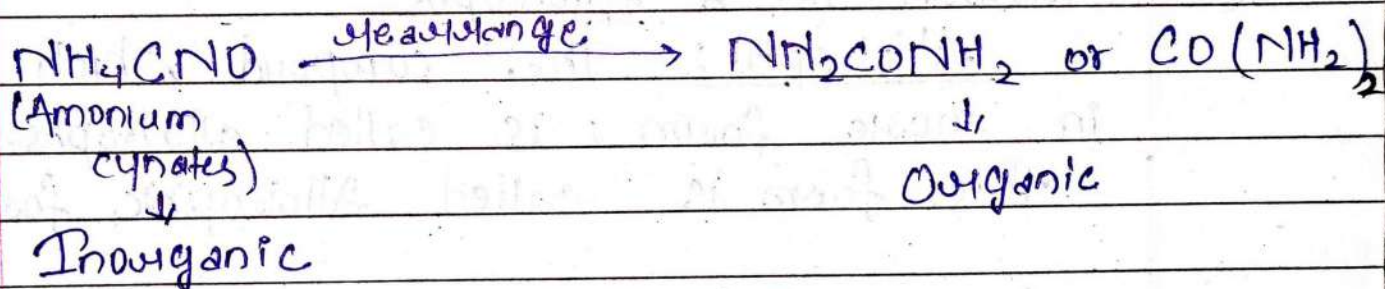 NH₄CNO rearrange → NH₂CONH₂ or CO(NH₂)₂
(Amonium
cynates)
↓ ↓
Inorganic Organic